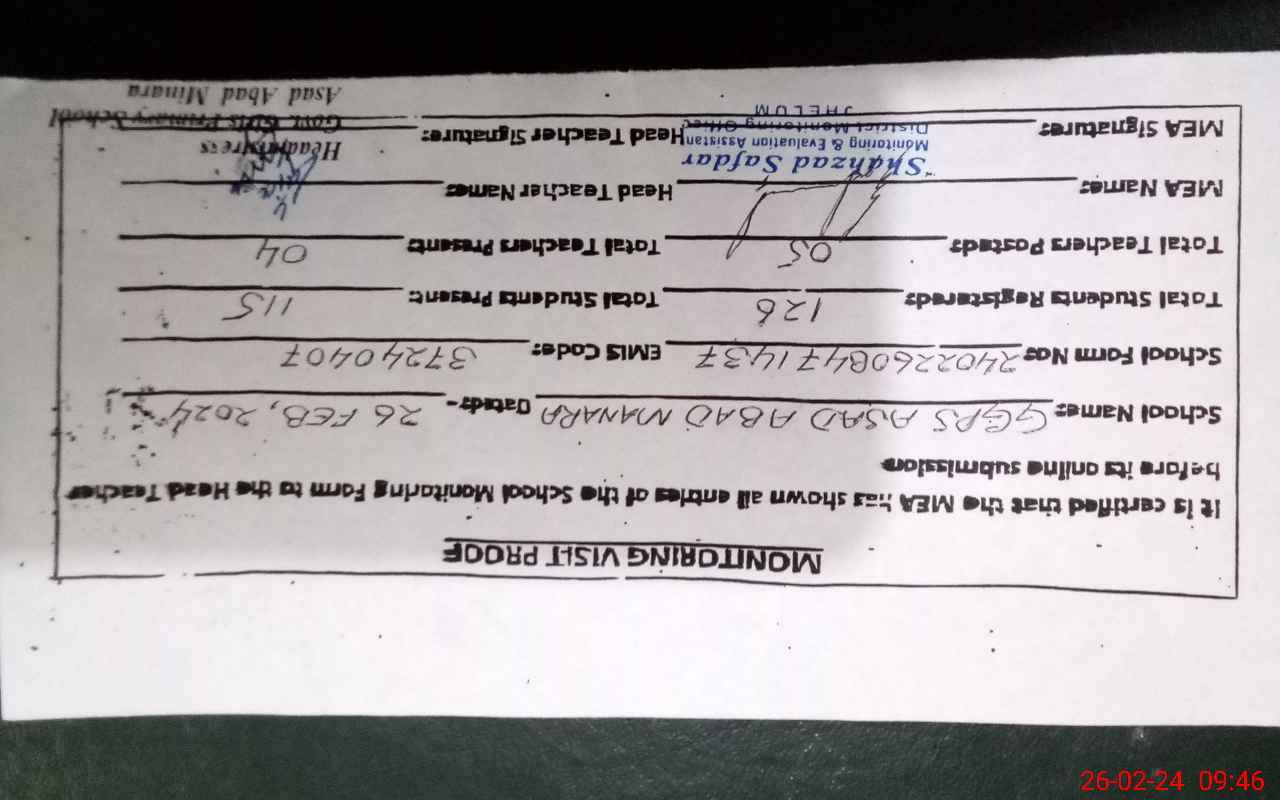 MONITORING VISIT PROOF
It is certified that the MEA has shown all entries of the School Monitoring Form to the Head Teacher
before its online submission
School Name: GGPS ASAD ABAD MANARA Dated:- 26 FEB, 2024
School Form No: 2402260847 1437 EMIS Code: 37240407
Total Students Registered: 126 Total Students Present: 115
Total Teachers Posted: 05 Total Teachers Present: 04
MEA Name: Head Teacher Name:
"Shahzad Safdar
Monitoring & Evaluation Assistan
District Monitoring Officer
JHELUM
Headmistress
Govt. Girls Primary School
Asad Abad Minara
MEA Signature: Head Teacher Signature:
26-02-24 09:46